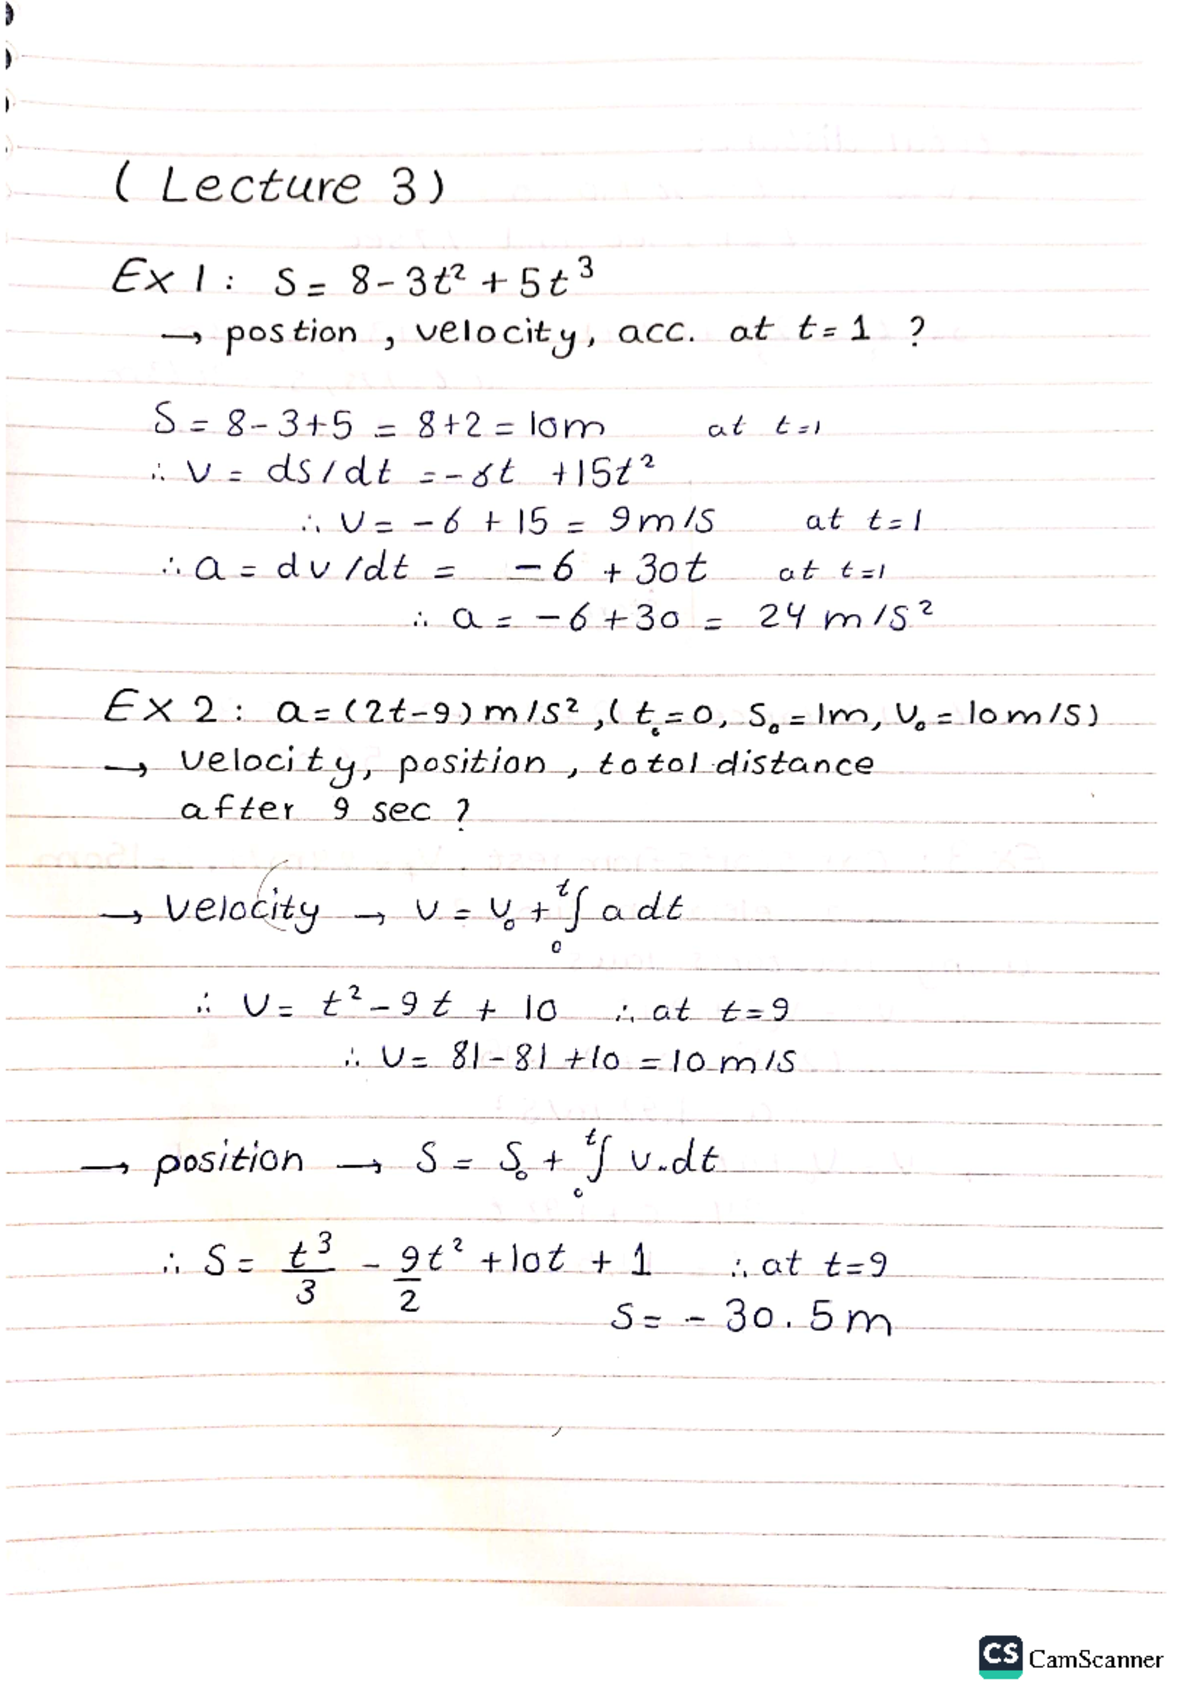 ( Lecture 3 )
Ex 1 : S = 8 - 3t² + 5t³
→ postion , velocity, acc. at t = 1 ?
S = 8 - 3 + 5 = 8 + 2 = 10m at t = 1
∴ v = ds / dt = - 6t + 15t²
∴ v = - 6 + 15 = 9 m/s at t = 1
∴ a = dv / dt = - 6 + 30t at t = 1
∴ a = - 6 + 30 = 24 m/s²
Ex 2 : a = (2t - 9) m/s² , ( t₀ = 0, S₀ = 1m, v₀ = 10 m/s )
→ velocity, position , totol distance
after 9 sec ?
→ velocity → v = v₀ + ₀ᵗ∫ a dt
∴ v = t² - 9t + 10 ∴ at t = 9
∴ v = 81 - 81 + 10 = 10 m/s
→ position → S = S₀ + ₀ᵗ∫ v.dt
∴ S = t³/3 - 9/2 t² + 10t + 1 ∴ at t = 9
S = - 30.5 m
CS CamScanner